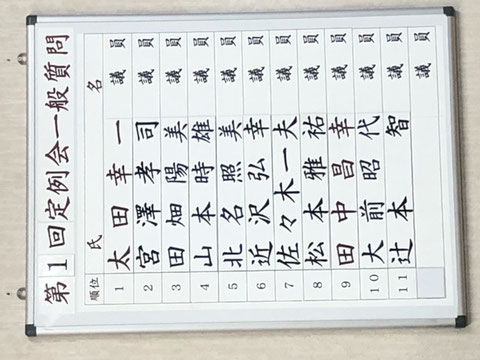 第1回定例会一般質問
順位 氏名
1 太田幸一 議員
2 宮澤孝司 議員
3 田畑陽美 議員
4 山本時雄 議員
5 北名照美 議員
6 近沢弘幸 議員
7 佐々木一夫 議員
8 松本雅祐 議員
9 田中昌幸 議員
10 大前昭代 議員
11 辻本智 議員
議員